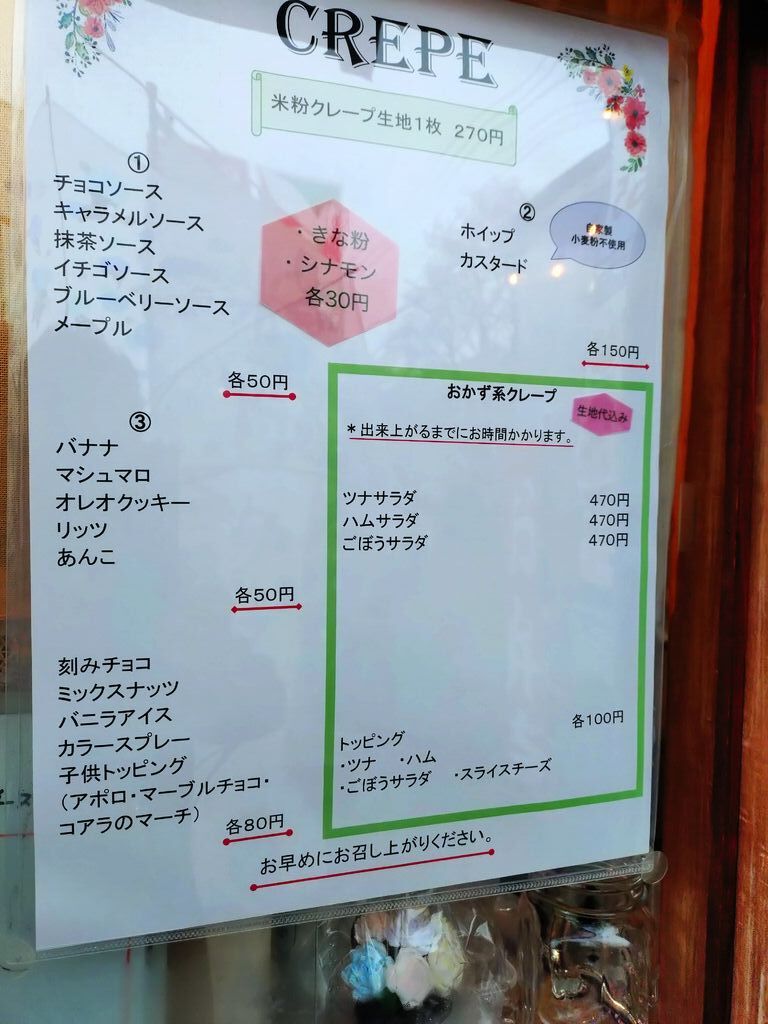 CREPE
米粉クレープ生地1枚 270円
①
チョコソース
キャラメルソース
抹茶ソース
イチゴソース
ブルーベリーソース
メープル
各50円
・きな粉
・シナモン
各30円
②
ホイップ
カスタード
自家製
小麦粉不使用
各150円
③
バナナ
マシュマロ
オレオクッキー
リッツ
あんこ
各50円
刻みチョコ
ミックスナッツ
バニラアイス
カラースプレー
子供トッピング
(アポロ・マーブルチョコ・
コアラのマーチ)
各80円
おかず系クレープ
生地代込み
*出来上がるまでにお時間かかります。
ツナサラダ 470円
ハムサラダ 470円
ごぼうサラダ 470円
各100円
トッピング
・ツナ ・ハム
・ごぼうサラダ ・スライスチーズ
お早めにお召し上がりください。